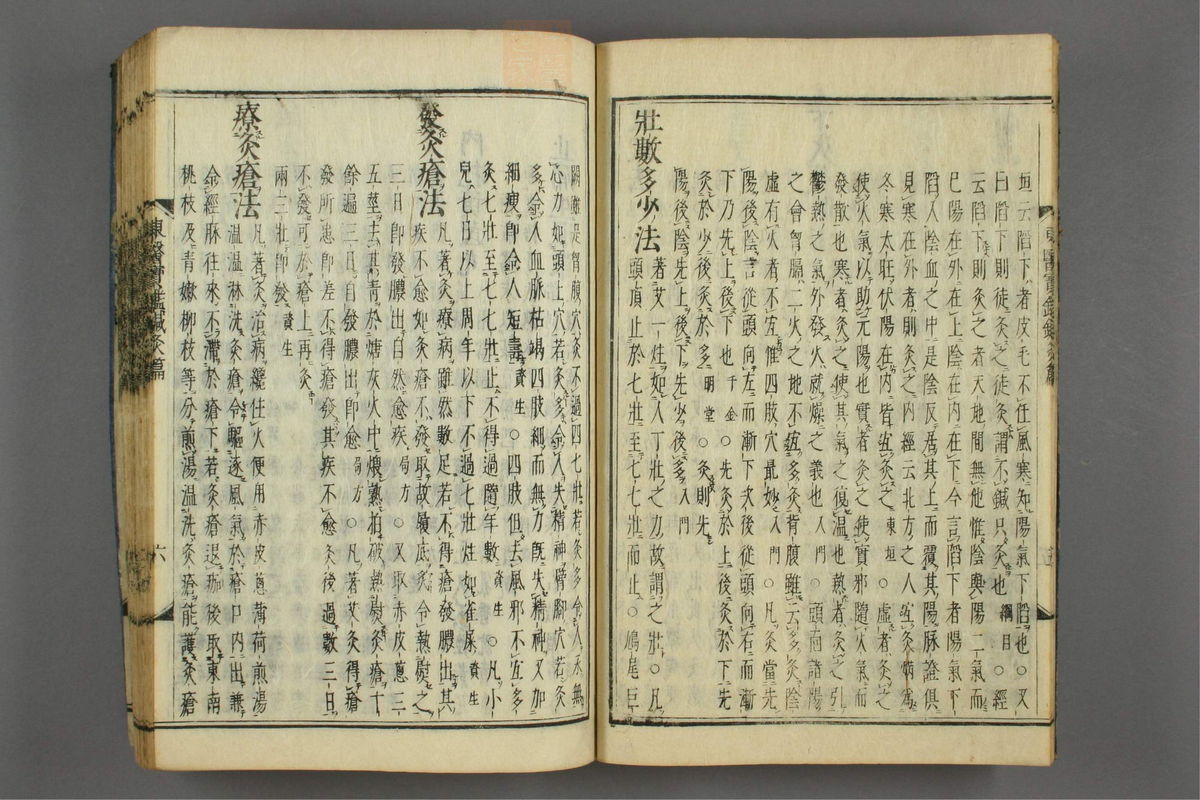 垣云陷下者皮毛不任風寒知陽氣下陷也○又
曰陷下則徒灸之徒灸謂不鍼只灸也綱目○經
云陷下則灸之者天地間無他惟陰與陽二氣而
已陽在外在上陰在內在下今言陷下者陽氣下
陷入陰血之中是陰反居其上而覆其陽脉證俱
見寒在外者則灸之內經云北方之人宜灸焫爲
冬寒太旺伏陽在內皆宜灸之東垣○虛者灸之
使火氣以助元陽也實者灸之使實邪隨火氣而
發散也寒者灸之使其氣之復温也熱者灸之引
鬱熱之氣外發火就燥之義也入門○頭面諸陽
之會胷膈二火之地不宜多灸背腹雖云多灸陰
虛有火者不宜惟四肢穴最妙入門○凡灸當先
陽後陰言從頭向左而漸下次後從頭向右而漸
下乃先上後下也千金○先灸於上後灸於下先
灸於少後灸於多明堂○灸則先
陽後陰先上後下先少後多入門
壯數多少法
著艾一炷如人丁壯之力故謂之壯○凡
頭頂止於七壯至七七壯而止○鳩尾巨
闕雖是胷腹穴灸不過四七壯若灸多令人永無
心力如頭上穴若灸多令人失精神臂脚穴若灸
多令人血脉枯竭四肢細而無力旣失精神又加
細瘦卽令人短壽資生○四肢但去風邪不宜多
灸七壯至七七壯止不得過隨年數資生○凡小
兒七日以上周年以下不過七壯炷如雀屎資生
發灸瘡法
凡著灸療病雖然數足若不得瘡發膿出其
疾不愈如灸瘡不發取故履底灸令熱熨之
三日卽發膿出自然愈疾局方○又取赤皮葱三
五莖去其靑於煻灰火中煨熟拍破熱熨灸瘡十
餘遍三日自發膿出卽愈局方○凡著艾灸得瘡
發所患卽差不得瘡發其疾不愈灸後過數三日
不發可於瘡上再灸
兩三壯卽發資生
療灸瘡法
凡著灸治病纔住火便用赤皮葱薄荷煎湯
温温淋洗灸瘡令驅逐風氣於瘡口內出兼
令經脉往來不滯於瘡下若灸瘡退痂後取東南
桃枝及靑嫩柳枝等分煎湯温洗灸瘡能護灸瘡
東醫寶鑑鍼灸篇
六